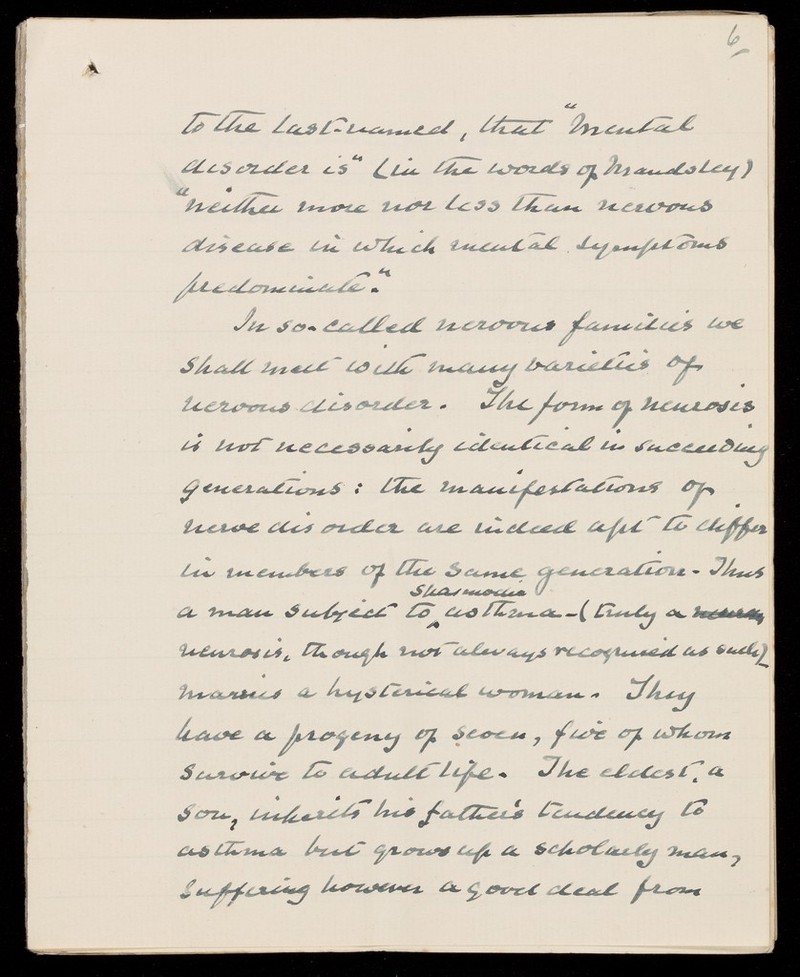 6
to the last-named, that "Mental
disorder is" (in the words of Maudsley)
"neither more nor less than nervous
disease in which mental symptoms
predominate."
In so-called nervous families we
shall meet with many varieties of
nervous disorder. The form of neurosis
is not necessarily identical in succeeding
generations: the manifestations of
nerve disorder are indeed apt to differ
in members of the same generation. Thus
spasmodic
a man subject to asthma - (truly a
neurosis, though not always recognised as such) -
marries a hysterical woman. They
have a progeny of seven, five of whom
survive to adult life. The eldest, a
son, inherits his father's tendency to
asthma but grows up a scholarly man,
suffering however a good deal from